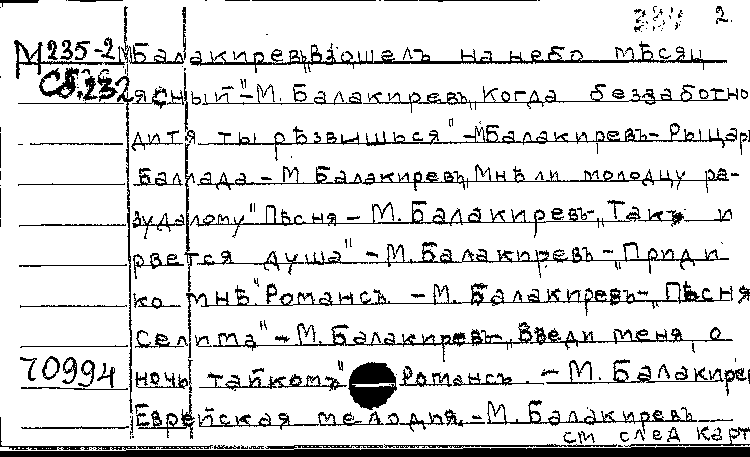 384 2.
М235-2 М Балакиревъ „Взошелъ на небо мѣсяц
Сб.232 ясный" – М. Балакиревъ „Когда беззаботно
дитя ты рѣзвишься" – М Балакиревъ – Рыцарь
Баллада – М Балакиревъ „Мнѣ ли молодцу ра-
зудалому" Пѣсня – М. Балакиревъ – „Такъ и
рвется душа" – М. Балакиревъ – „Приди
ко мнѣ" Романсъ – М. Балакиревъ – „Пѣсня
Селима" – М. Балакиревъ – „Введи меня, о
70994 ночь тайкомъ" Романсъ. – М. Балакирев
Еврейская мелодия. – М. Балакиревъ
см след карт